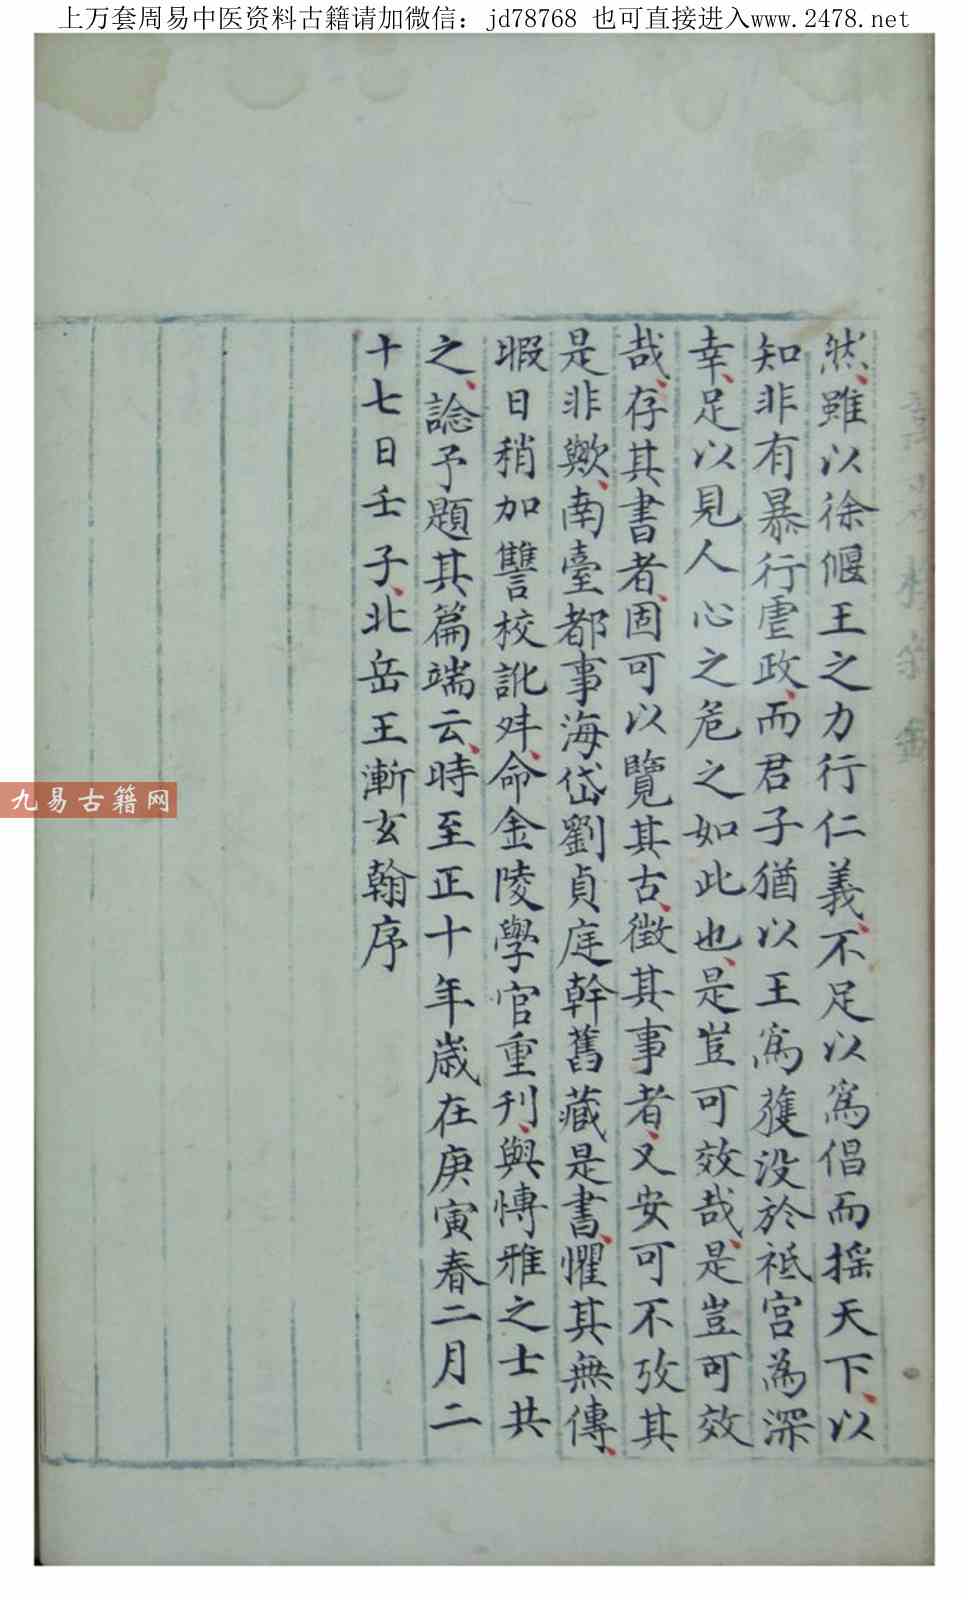 上万套周易中医资料古籍请加微信：jd78768 也可直接进入www.2478.net
然、雖以徐偃王之力行仁義、不足以爲倡而摇天下、以
知非有暴行虐政、而君子猶以王爲獲没於祗宫為深
幸、足以見人心之危之如此也、是豈可效哉、是豈可效
哉、存其書者、固可以覽其古、徵其事者、又安可不攷其
是非歟、南臺都事海岱劉貞庭幹舊藏是書、懼其無傳、
暇日稍加讐校訛舛、命金陵學官重刊、與愽雅之士共
之、諗予題其篇端云、時至正十年歳在庚寅春二月二
十七日壬子、北岳王漸玄翰序
九易古籍网